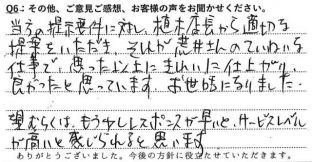 Q6：その他、ご意見ご感想、お客様の声をお聞かせください。
当方の提示要件に対し、植木店長から適切な
提案をいただき、それが荒井さんのていねいな
仕事で、思った以上にきれいに仕上がり、
良かったと思っています。お世話になりました。
望むらくは、もう少しレスポンスが早いと、サービスレベル
が高いと感じられると思います
ありがとうございました。今後の方針に役立たせていただきます。